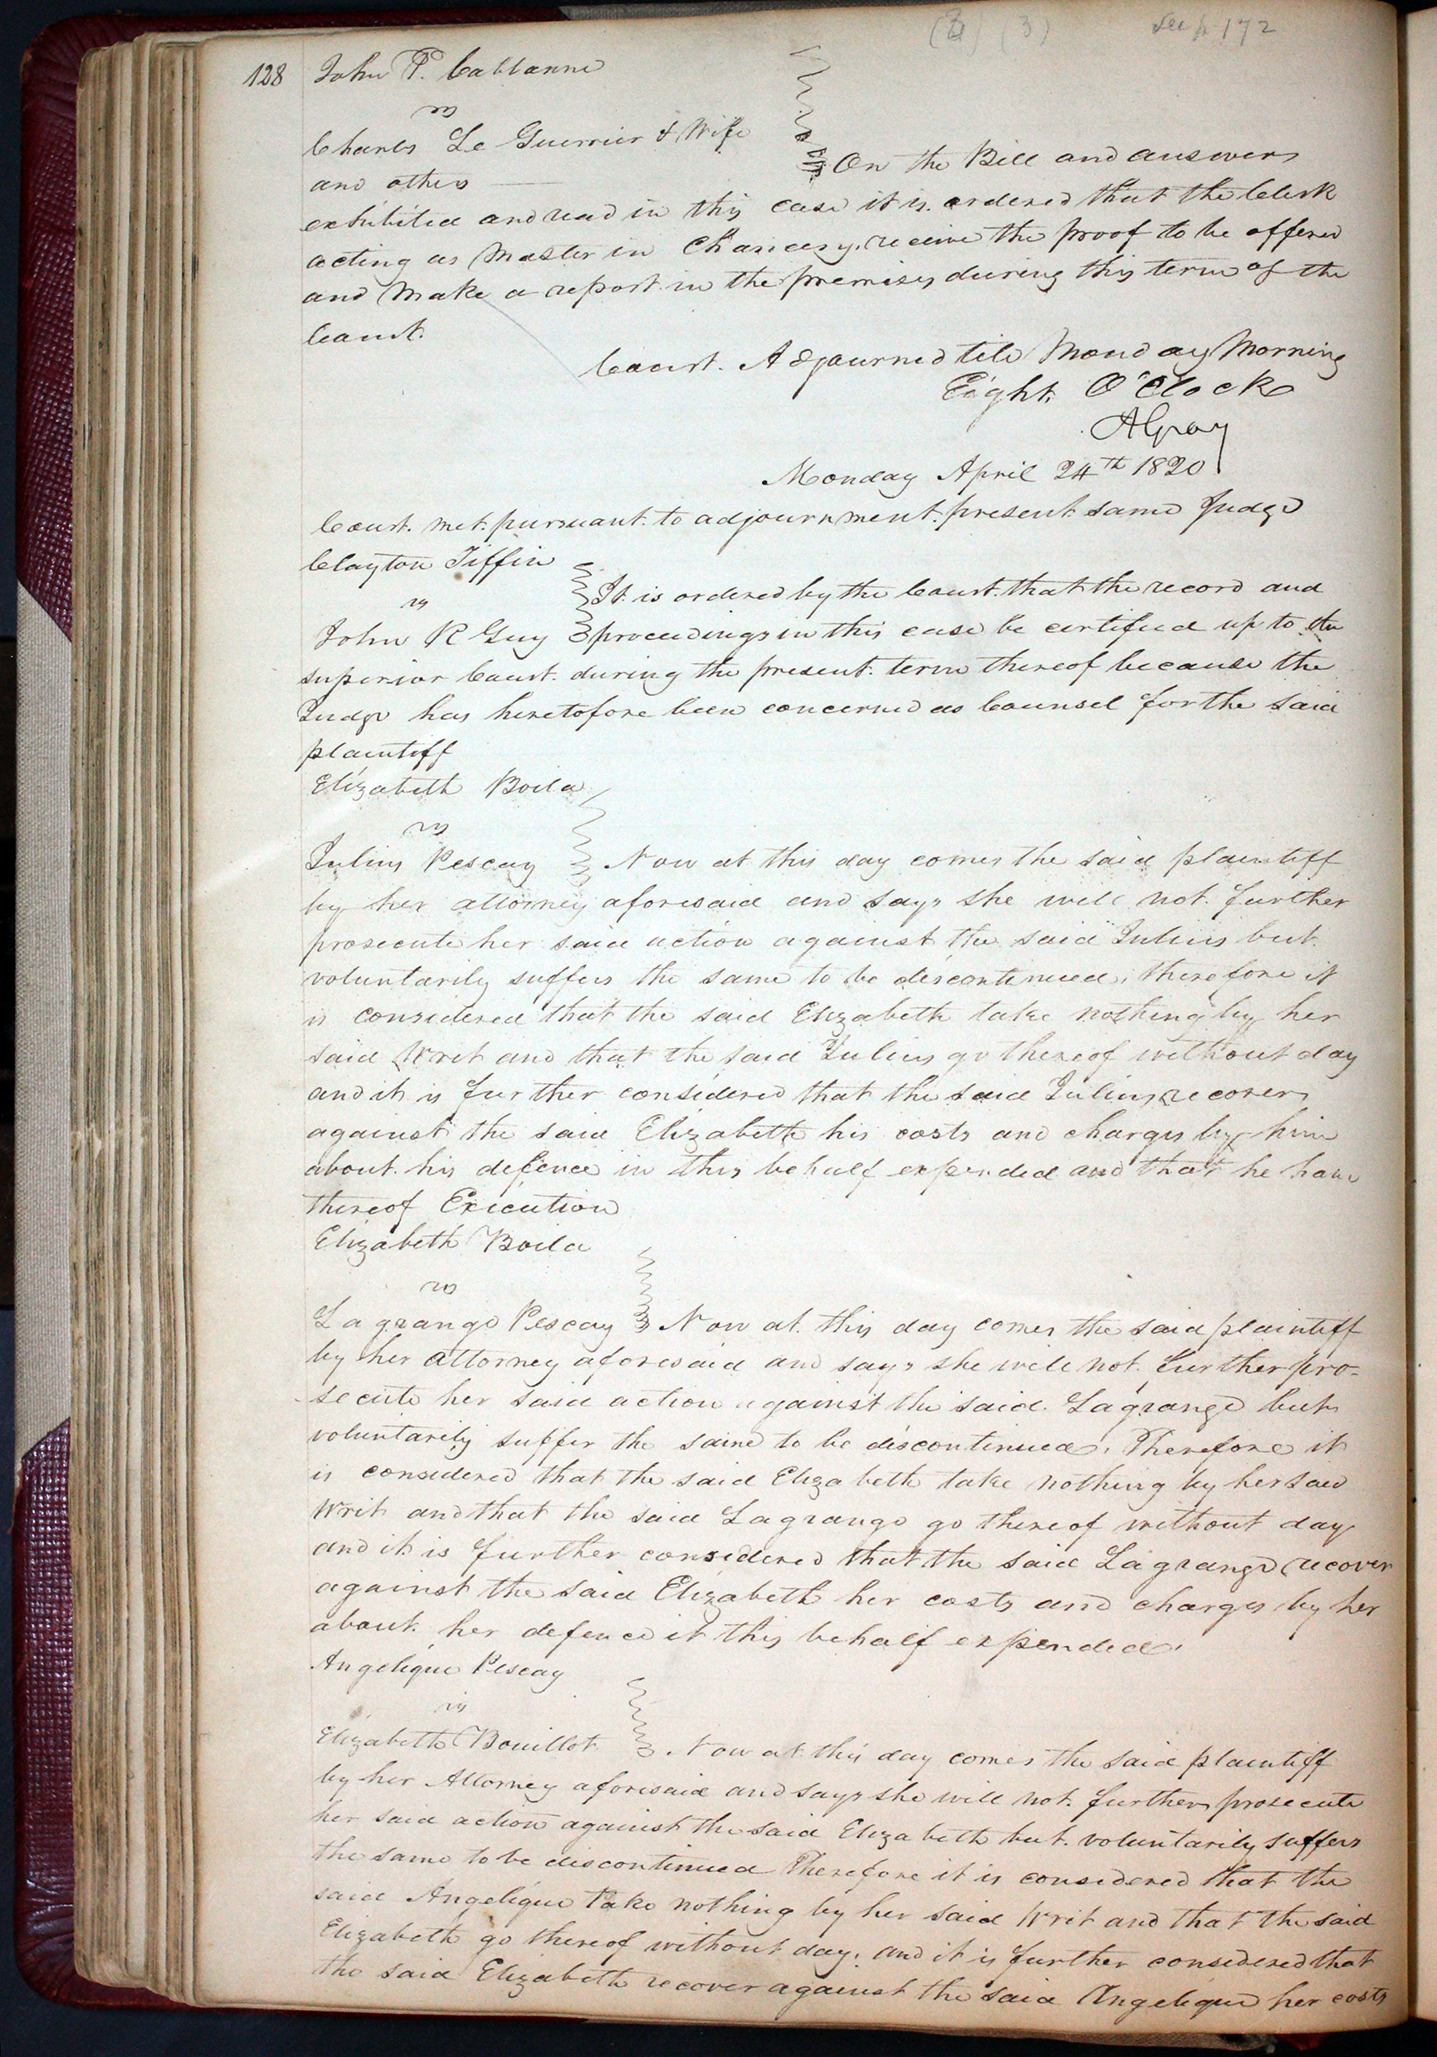 (3) see p 172
128 John P. Cabbanne
vs
Charles Le Guerrier & Wife
and others On the Bill and answers
exhibited and read in this case it is ordered that the Clerk
acting as Master in Chancery, receive the proof to be offered
and make a report in the premises during this term of the
Court.
Court. Adjourned till Monday Morning
Eight O'Clock
A Gray
Monday April 24th 1820
Court. met. pursuant. to adjournment. present. same Judge
Clayton Tiffin
vs It. is ordered by the Court. that the record and
John R Guy proceedings in this case be certified up to the
superior Court. during the present. term thereof because the
Judge has heretofore been concerned as Counsel for the said
plaintiff
Elizabeth Boila
vs
Julius Pescay Now at this day comes the said plaintiff
by her attorney aforesaid and says she will not. further
prosecute her said action against the said Julius but.
voluntarily suffers the same to be discontinued, therefore it
is considered that the said Elizabeth take nothing by her
said Writ and that the said Julius go thereof without day
and it is further considered that the said Julius recovers
against the said Elizabeth his costs and charges by him
about. his defence in this behalf expended and that he have
thereof Execution
Elizabeth Boila
vs
Lagrange Pescay Now at. this day comes the said plaintiff
by her attorney aforesaid and says she will not. further pro-
secute her said action against the said. Lagrange but
voluntarily suffer the same to be discontinued. Therefore it
is considered that the said Elizabeth take nothing by her said
Writ and that the said Lagrange go thereof without day
and it is further considered that the said Lagrange recover
against the said Elizabeth her costs and charges by her
about. her defence it this behalf expended.
Angelique Pescay
vs
Elizabeth Bouillot Now at this day comes the said plaintiff
by her Attorney aforesaid and says she will not. further prosecute
her said action against the said Elizabeth but. voluntarily suffers
the same to be discontinued Therefore it is considered that the
said Angelique take nothing by her said Writ and that the said
Elizabeth go thereof without day. and it is further considered that
the said Elizabeth recover against the said Angelique her costs